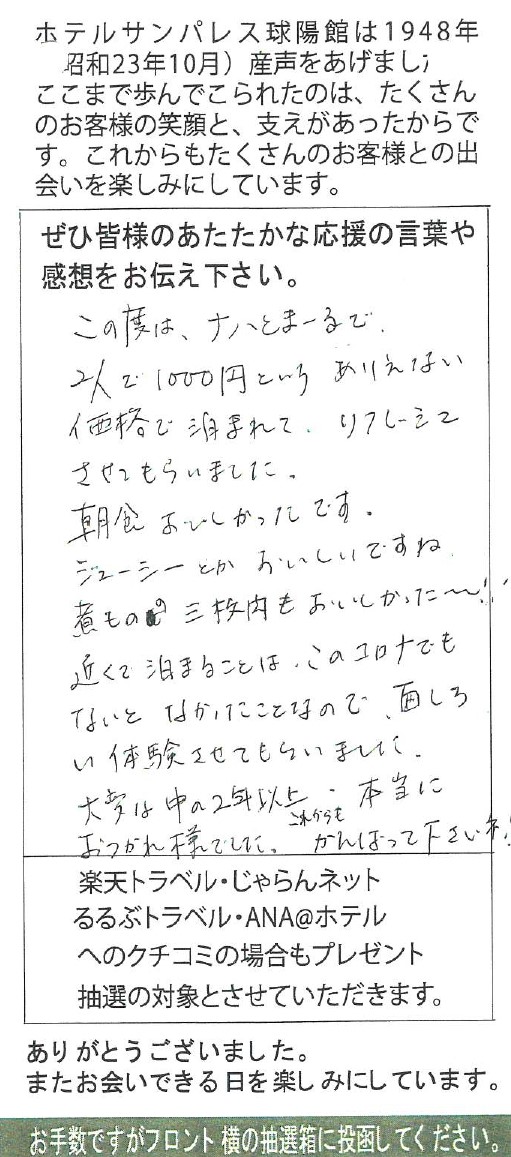 ホテルサンパレス球陽館は1948年
昭和23年10月）産声をあげまし
ここまで歩んでこられたのは、たくさん
のお客様の笑顔と、支えがあったからで
す。これからもたくさんのお客様との出
会いを楽しみにしています。
ぜひ皆様のあたたかな応援の言葉や
感想をお伝え下さい。
この度は、ナハとまーるで、
2人で1000円という ありえない
価格で泊まれて、リフレーシュ
させてもらいました。
朝食 おいしかったです。
ジューシーとか おいしいですね
煮もの 三枚肉もおいしかった〜!!
近くで泊まることは、このコロナでも
ないと なかったことなので、面しろ
い体験させてもらいました。
大変な中の2年以上、本当に
おつかれ様でした。これからも がんばって下さいネ!!
楽天トラベル・じゃらんネット
るるぶトラベル・ANA@ホテル
へのクチコミの場合もプレゼント
抽選の対象とさせていただきます。
ありがとうございました。
またお会いできる日を楽しみにしています。
お手数ですがフロント横の抽選箱に投函してください。